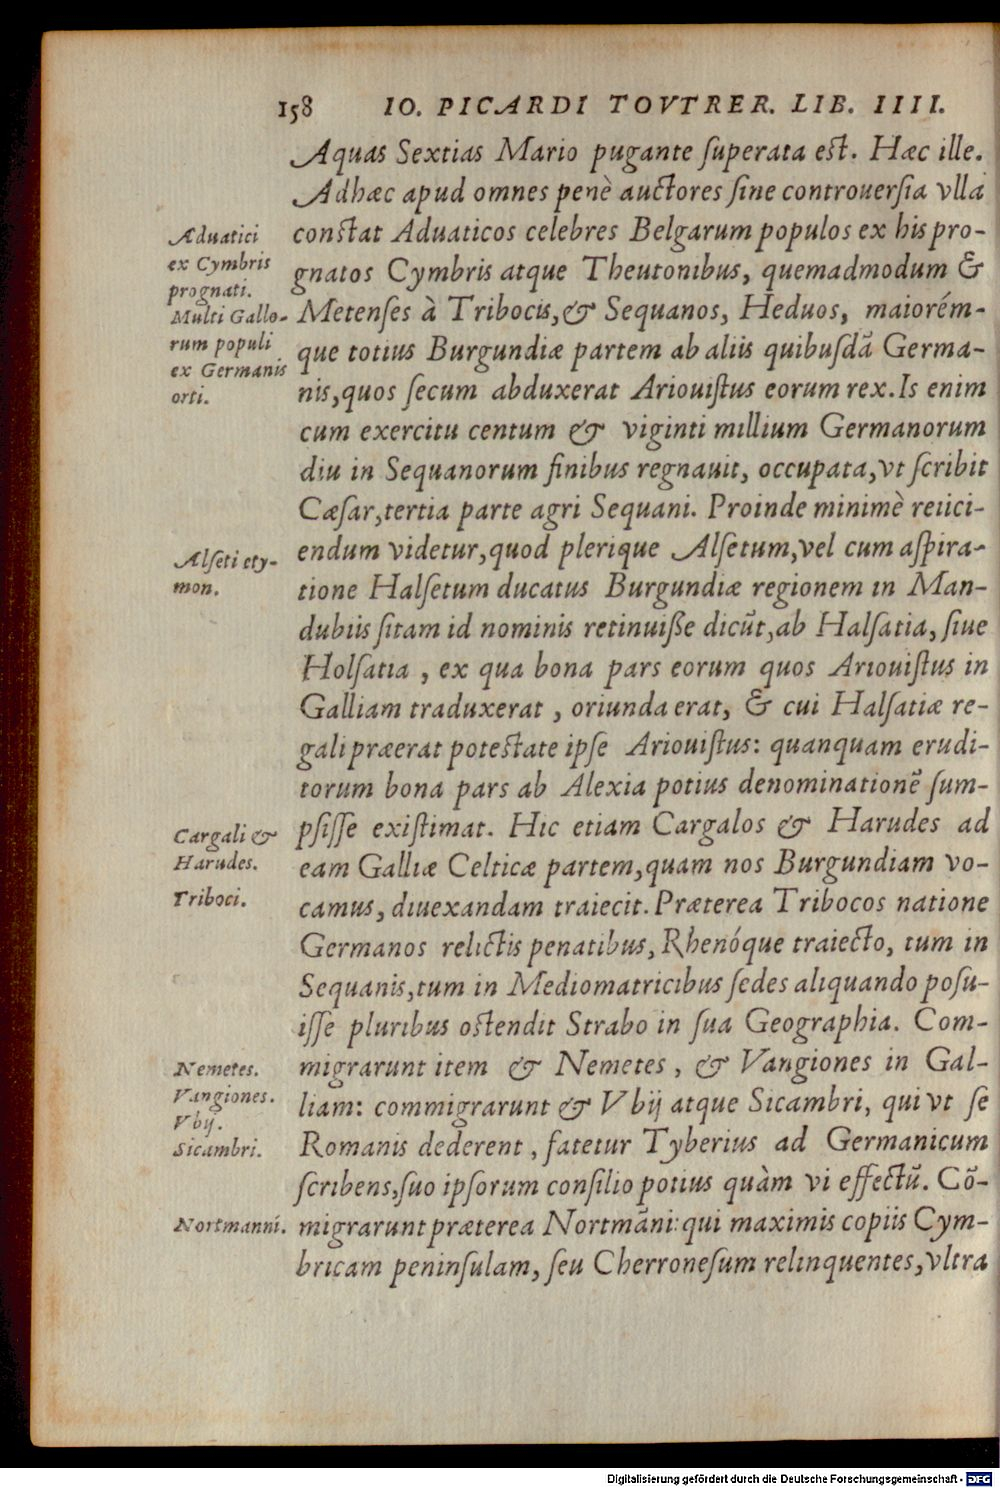 158 IO. PICARDI TOVTRER. LIB. IIII.
Aquas Sextias Mario pugante ſuperata eſt. Hæc ille.
Adhæc apud omnes penè auctores ſine controuerſia vlla
conſtat Aduaticos celebres Belgarum populos ex his pro-
gnatos Cymbris atque Theutonibus, quemadmodum &
Metenſes à Tribocis, & Sequanos, Heduos, maiorém-
que totius Burgundiæ partem ab aliis quibuſdã Germa-
nis, quos ſecum abduxerat Ariouiſtus eorum rex. Is enim
cum exercitu centum & viginti millium Germanorum
diu in Sequanorum finibus regnauit, occupata, vt ſcribit
Cæſar, tertia parte agri Sequani. Proinde minimè reiici-
endum videtur, quod plerique Alſetum, vel cum aſpira-
tione Halſetum ducatus Burgundiæ regionem in Man-
dubiis ſitam id nominis retinuiße dicũt, ab Halſatia, ſiue
Holſatia, ex qua bona pars eorum quos Ariouiſtus in
Galliam traduxerat, oriunda erat, & cui Halſatiæ re-
gali præerat poteſtate ipſe Ariouiſtus: quanquam erudi-
torum bona pars ab Alexia potius denominationẽ ſum-
pſiſſe exiſtimat. Hic etiam Cargalos & Harudes ad
eam Galliæ Celticæ partem, quam nos Burgundiam vo-
camus, diuexandam traiecit. Præterea Tribocos natione
Germanos relictis penatibus, Rhenóque traiecto, tum in
Sequanis, tum in Mediomatricibus ſedes aliquando poſu-
iſſe pluribus oſtendit Strabo in ſua Geographia. Com-
migrarunt item & Nemetes, & Vangiones in Gal-
liam: commigrarunt & Vbij atque Sicambri, qui vt ſe
Romanis dederent, fatetur Tyberius ad Germanicum
ſcribens, ſuo ipſorum conſilio potius quàm vi effectũ. Cõ-
migrarunt præterea Nortmãni: qui maximis copiis Cym-
bricam peninſulam, ſeu Cherroneſum relinquentes, vltra
Æduatici
ex Cymbris
prognati.
Multi Gallo-
rum populi
ex Germanis
orti.
Alſeti ety-
mon.
Cargali &
Harudes.
Triboci.
Nemetes.
Vangiones.
Vbij.
Sicambri.
Nortmanni.
Digitalisierung gefördert durch die Deutsche Forschungsgemeinschaft - DFG